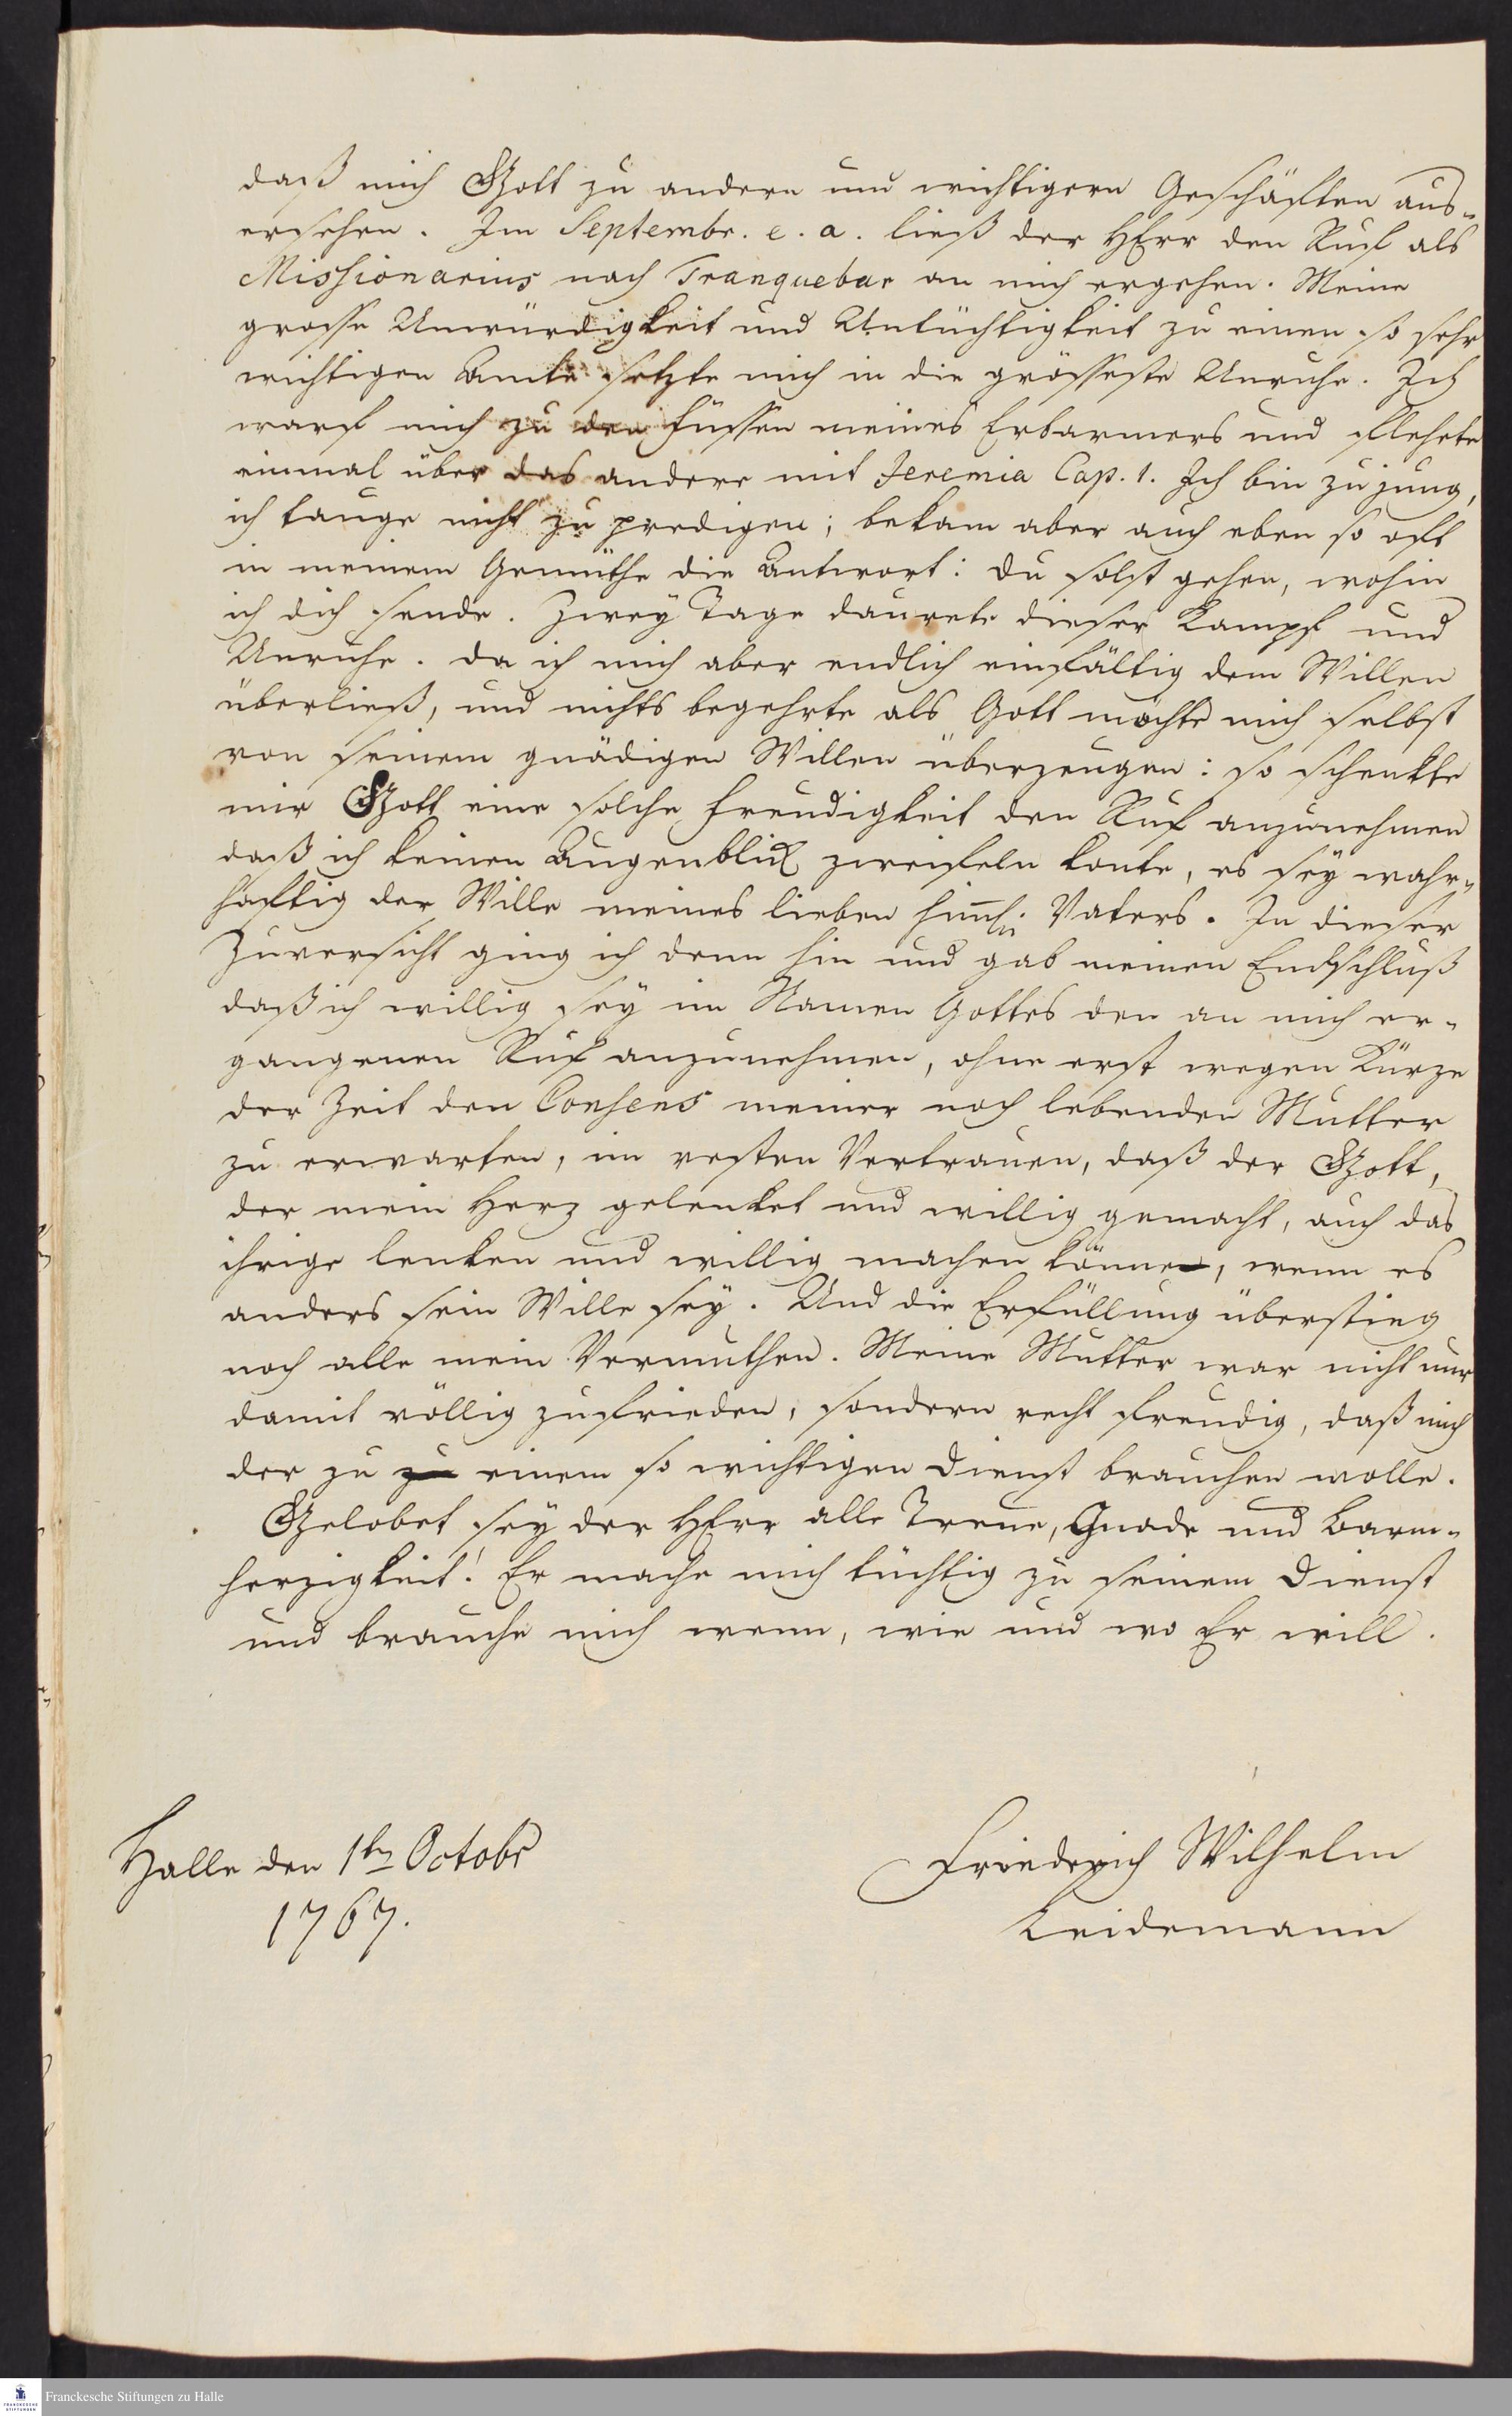 daß mich GOtt zu andern und wichtigern Geschäften aus-
ersehen. Im Septembr. e. a. ließ der HErr den Ruf als
Missionarius nach Tranquebar an mich ergehen. Meine
grosse Unwürdigkeit und Untüchtigkeit zu einen so sehr
wichtigen Amte setzte mich in die grösseste Unruhe. Ich
warf mich zu den Füssen meines Erbarmers und flehete
einmal über das andere mit Jeremia Cap. 1. Ich bin zu jung,
ich tauge nicht zu predigen; bekam aber auch eben so oft
in meinem Gemüthe die Antwort: du solst gehen, wohin
ich dich sende. Zwey Tage daurete dieser Kampf und
Unruhe. da ich mich aber endlich einfältig dem Willen
überließ, und nichts begehrte als Gott möchte mich selbst
von seinem gnädigen Willen überzeugen: so schenkte
mir GOtt eine solche Freudigkeit den Ruf anzunehmen
daß ich keinen Augenblick zweifeln konte, es sey wahr-
haftig der Wille meines lieben himml. Vaters. In dieser
Zuversicht ging ich denn hin und gab meinen Endschluß
daß ich willig sey im Namen Gottes den an mich er-
gangenen Ruf anzunehmen, ohne erst wegen Kürze
der Zeit den Consens meiner noch lebenden Mutter
zu erwarten, im vesten Vertrauen, daß der GOtt,
der mein Herz gelenket und willig gemacht, auch das
ihrige lenken und willig machen könne, wenn es
anders sein Wille sey. Und die Erfüllung überstieg
noch alle mein Vermuthen. Meine Mutter war nicht nur
damit völlig zufrieden, sondern recht freudig, daß mich
der zu zu einem so wichtigen Dienst brauchen wolle.
GElobet sey der HErr alle Treue, Gnade und Barm-
herzigkeit! Er mache mich tüchtig zu seinem Dienst
und brauche mich wenn, wie und wo Er will.
Halle den 1ten Octobr
1767.
Friederich Wilhelm
Leidemann
Franckesche Stiftungen zu Halle